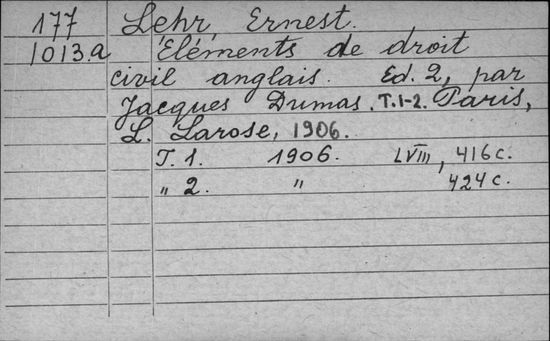 177 Lehr, Ernest.
1013.a Eléments de droit
civil anglais. Ed. 2, par
Jacques Dumas. T.1-2. Paris,
L. Larose, 1906.
T. 1. 1906. LVIII, 416 c.
„ 2. „ 424 c.